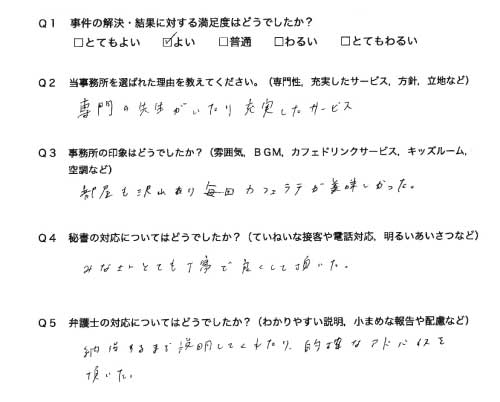 Q1 事件の解決・結果に対する満足度はどうでしたか？
□とてもよい ☑よい □普通 □わるい □とてもわるい
Q2 当事務所を選ばれた理由を教えてください。（専門性，充実したサービス，方針，立地など）
専門の先生がいたり充実したサービス
Q3 事務所の印象はどうでしたか？（雰囲気，BGM，カフェドリンクサービス，キッズルーム，
空調など）
部屋も沢山あり毎回カフェラテが美味しかった。
Q4 秘書の対応についてはどうでしたか？（ていねいな接客や電話対応，明るいあいさつなど）
みなさんとても丁寧で良くして頂いた。
Q5 弁護士の対応についてはどうでしたか？（わかりやすい説明，小まめな報告や配慮など）
納得するまで説明してくれたり、的確なアドバイスを
頂いた。